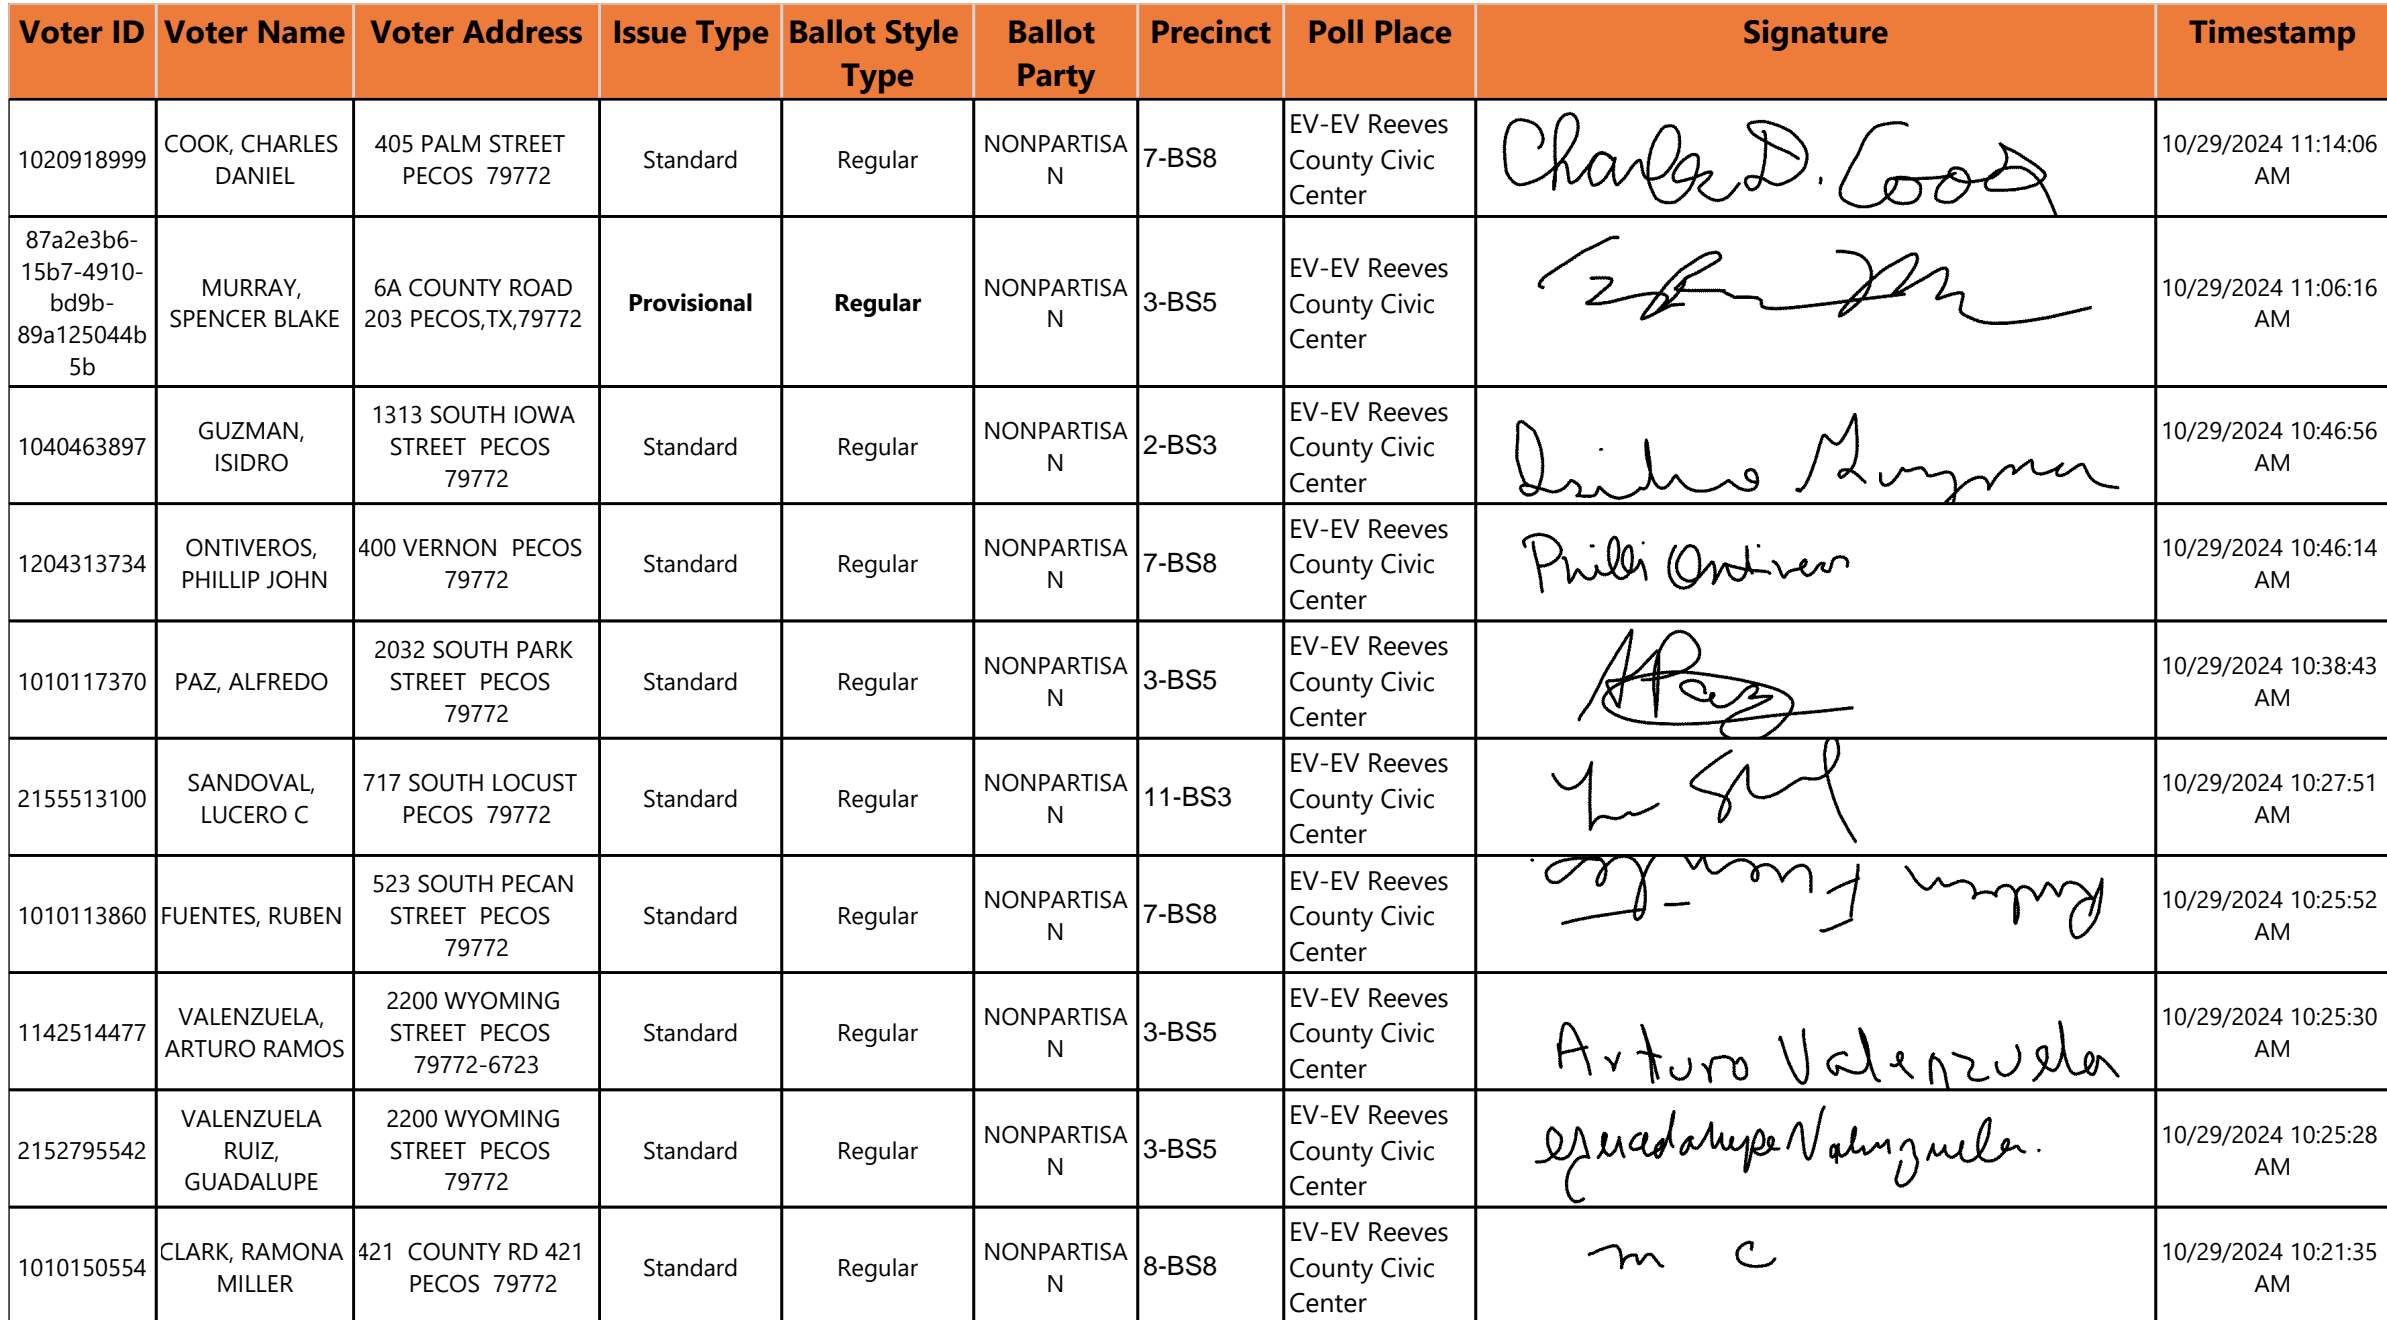 Voter ID Voter Name Voter Address Issue Type Ballot Style Type Ballot Party Precinct Poll Place Signature Timestamp
1020918999 COOK, CHARLES DANIEL 405 PALM STREET PECOS 79772 Standard Regular NONPARTISAN 7-BS8 EV-EV Reeves County Civic Center Charles D. Cook 10/29/2024 11:14:06 AM
87a2e3b6-15b7-4910-bd9b-89a125044b5b MURRAY, SPENCER BLAKE 6A COUNTY ROAD 203 PECOS,TX,79772 Provisional Regular NONPARTISAN 3-BS5 EV-EV Reeves County Civic Center 10/29/2024 11:06:16 AM
1040463897 GUZMAN, ISIDRO 1313 SOUTH IOWA STREET PECOS 79772 Standard Regular NONPARTISAN 2-BS3 EV-EV Reeves County Civic Center Isidro Guzman 10/29/2024 10:46:56 AM
1204313734 ONTIVEROS, PHILLIP JOHN 400 VERNON PECOS 79772 Standard Regular NONPARTISAN 7-BS8 EV-EV Reeves County Civic Center Philli Ontiveros 10/29/2024 10:46:14 AM
1010117370 PAZ, ALFREDO 2032 SOUTH PARK STREET PECOS 79772 Standard Regular NONPARTISAN 3-BS5 EV-EV Reeves County Civic Center APaz 10/29/2024 10:38:43 AM
2155513100 SANDOVAL, LUCERO C 717 SOUTH LOCUST PECOS 79772 Standard Regular NONPARTISAN 11-BS3 EV-EV Reeves County Civic Center 10/29/2024 10:27:51 AM
1010113860 FUENTES, RUBEN 523 SOUTH PECAN STREET PECOS 79772 Standard Regular NONPARTISAN 7-BS8 EV-EV Reeves County Civic Center 10/29/2024 10:25:52 AM
1142514477 VALENZUELA, ARTURO RAMOS 2200 WYOMING STREET PECOS 79772-6723 Standard Regular NONPARTISAN 3-BS5 EV-EV Reeves County Civic Center Arturo Valenzuela 10/29/2024 10:25:30 AM
2152795542 VALENZUELA RUIZ, GUADALUPE 2200 WYOMING STREET PECOS 79772 Standard Regular NONPARTISAN 3-BS5 EV-EV Reeves County Civic Center Guadalupe Valenzuela. 10/29/2024 10:25:28 AM
1010150554 CLARK, RAMONA MILLER 421 COUNTY RD 421 PECOS 79772 Standard Regular NONPARTISAN 8-BS8 EV-EV Reeves County Civic Center m c 10/29/2024 10:21:35 AM